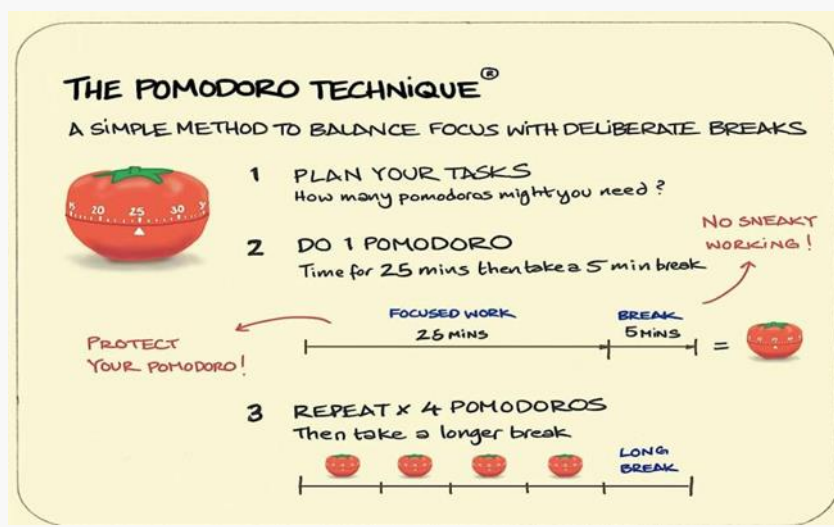 THE POMODORO TECHNIQUE®
A SIMPLE METHOD TO BALANCE FOCUS WITH DELIBERATE BREAKS
1 PLAN YOUR TASKS
How many pomodoros might you need?
15 20 25 30
2 DO 1 POMODORO
Time for 25 mins then take a 5 min break
NO SNEAKY
WORKING!
PROTECT
YOUR POMODORO!
FOCUSED WORK
25 MINS
BREAK
5 MINS
=
3 REPEAT x 4 POMODOROS
Then take a longer break
LONG
BREAK